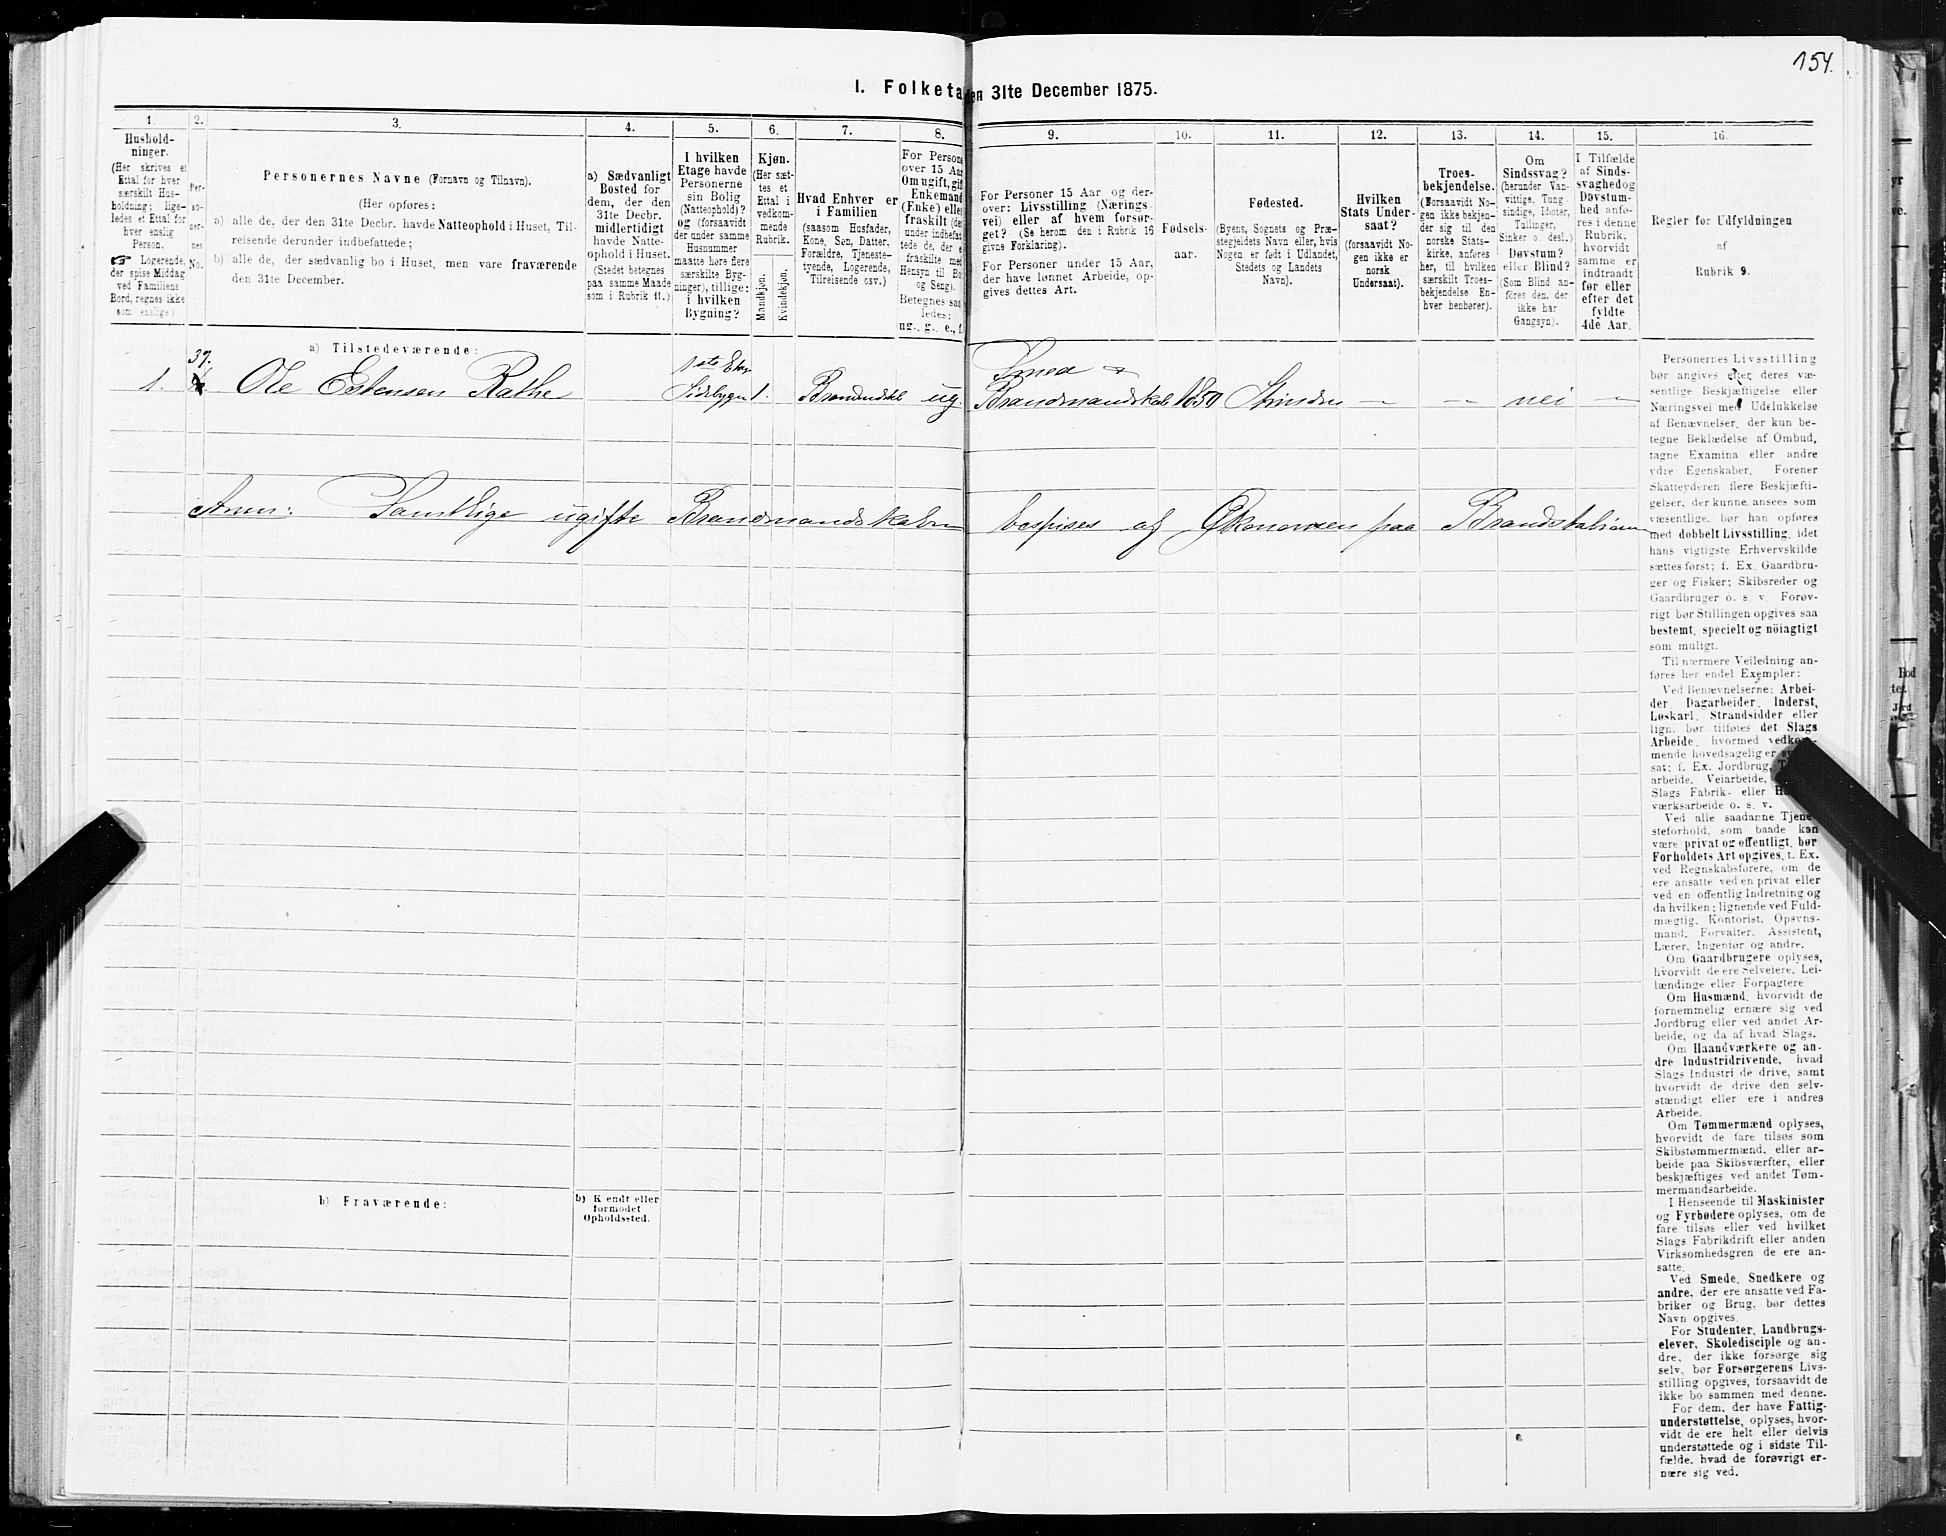 154.
I. Folketa
en 31te December 1875.
1.
Hushold-
ninger.
(Her skrives et
Ettal for hver
særskilt Hus-
holdning; lige-
ledes et Ettal for
hver enslig
Person.
☞ Logerende,
der spise Middag
ved Familiens
Bord, regnes ikke
som enslige.)
2.
Per-
so-
ner-
nes
No.
3.
Personernes Navne (Fornavn og Tilnavn).
(Her opføres:
a) alle de, der den 31te Decbr. havde Natteophold i Huset, Til-
reisende derunder indbefattede;
b) alle de, der sædvanlig bo i Huset, men vare fraværende
den 31te December.
4.
a) Sædvanligt
Bosted for
dem, der den
31te Decbr.
midlertidigt
havde Natte-
ophold i Huset.
(Stedet betegnes
paa samme Maade
som i Rubrik 11.)
5.
I hvilken
Etage havde
Personerne
sin Bolig
(Natteophold)?
og (forsaavidt
der under samme
Husnummer
maatte høre flere
særskilte Byg-
ninger), tillige:
i hvilken
Bygning?
6.
Kjøn.
(Her sæt-
tes et
Ettal i
vedkom-
mende
Rubrik.
Mandkjøn.
Kvindekjøn.
7.
Hvad Enhver er
i Familien
(saasom Husfader,
Kone, Søn, Datter,
Forældre, Tjeneste-
tyende, Logerende,
Tilreisende osv.)
8.
For Persone
over 15 Aar
Om ugift, gif
Enkemand
(Enke) elle
fraskilt (der
under indbefat
tede de, der e
fraskilte med
Hensyn til Bo
og Seng).
Betegnes saa
ledes:
ug., g., e., f.
9.
For Personer 15 Aar og der-
over: Livsstilling (Nærings-
vei) eller af hvem forsør-
get? (Se herom den i Rubrik 16
givne Forklaring).
For Personer under 15 Aar,
der have lønnet Arbeide, op-
gives dettes Art.
10.
Fødsels-
aar.
11.
Fødested.
(Byens, Sognets og Præ-
stegjeldets Navn eller, hvis
Nogen er født i Udlandet,
Stedets og Landets
Navn).
12.
Hvilken
Stats Under-
saat?
(forsaavidt No-
gen ikke er
norsk
Undersaat).
13.
Troes-
bekjendelse.
(Forsaavidt No-
gen ikke bekjen-
der sig til den
norske Stats-
kirke, anføres
her, til hvilken
særskilt Troes-
bekjendelse En-
hver henhører).
14.
Om
Sindssvag?
(herunder Van-
vittige, Tung-
sindige, Idioter,
Tullinger,
Sinker o. desl.)
Døvstum?
eller Blind?
(Som Blind an-
føres den, der
ikke har
Gangsyn).
15.
I Tilfælde
af Sinds-
svaghed og
Døvstum-
hed anfø-
res i denne
Rubrik,
hvorvidt
samme er
indtraadt
før eller
efter det
fyldte
4de Aar.
16.
Regler for Udfyldningen
af
Rubrik 9.
a) Tilstedeværende:
1. 37. Ole Estensen Rathe 1ste Etag Sidebygn 1. ug. Smed & 1850 Strinden — — nei —
Anm: Samtlige ugifte Brandmandskaber bespises af Økonomen paa Brandstationen
b) Fraværende:
b) Kjendt eller
formodet
Opholdssted.
Personernes Livsstilling
bør angives efter deres væ-
sentlige Beskjæftigelse eller
Næringsvei med Udelukkelse
af Benævnelser, der kun be-
tegne Beklædelse af Ombud,
tagne Examina eller andre
ydre Egenskaber. Forener
Skatteyderen flere Beskjæfti-
gelser, der kunne ansees som
væsentlige, bør han opføres
med dobbelt Livsstilling, idet
hans vigtigste Erhvervskilde
sættes først; f. Ex. Gaardbru-
ger og Fisker; Skibsreder og
Gaardbruger o. s. v. Forøv-
rigt bør Stillingen opgives saa
bestemt, specielt og nøiagtigt
som muligt.
Til nærmere Veiledning an-
føres her endel Exempler:
Ved Benævnelserne: Arbei-
der, Dagarbeider, Inderst,
Løskarl, Strandsidder eller
lign. bør tilføies det Slags
Arbeide, hvormed vedkom-
mende hovedsagelig er sy
sat; f. Ex. Jordbrug, T
arbeide, Veiarbeide,
Slags Fabrik- eller H
værksarbeide o. s. v.
Ved alle saadanne Tjene
steforhold, som baade kan
være privat og offentligt, bør
Forholdets Art opgives, t. Ex.
ved Regnskabsførere, om de
ere ansatte ved en privat eller
ved en offentlig Indretning og
da hvilken; lignende ved Fuld-
mægtig, Kontorist, Opsyns-
mand, Forvalter, Assistent,
Lærer, Ingeniør og andre.
Om Gaardbrugere oplyses,
hvorvidt de ere Selveiere, Lei-
lændinge eller Forpagtere
Om Husmænd, hvorvidt de
fornemmelig ernære sig ved
Jordbrug eller ved andet Ar-
beide, og da af hvad Slags.
Om Haandværkere og an-
dre Industridrivende, hvad
Slags Industri de drive, samt
hvorvidt de drive den selv-
stændigt eller ere i andres
Arbeide.
Om Tømmermænd oplyses,
hvorvidt de fare tilsøs som
Skibstømmermænd, eller ar-
beide paa Skibsværfter, eller
beskjæftiges ved andet Tøm-
mermandsarbeide.
I Henseende til Maskinister
og Fyrbødere oplyses, om de
fare tilsøs eller ved hvilket
Slags Fabrikdrift eller anden
Virksomhedsgren de ere an-
satte.
Ved Smede, Snedkere og
andre, der ere ansatte ved Fa-
briker og Brug, bør dettes
Navn opgives.
For Studenter, Landbrugs-
elever, Skoledisciple og an-
dre, der ikke forsørge sig
selv, bør Forsørgerens Livs-
stilling opgives, forsaavidt de
ikke bo sammen med denne.
For dem, der have Fattig-
understøttelse, oplyses, hvor-
vidt de ere helt eller delvis
understøttede og i sidste Til-
fælde, hvad de forøvrigt er-
nære sig ved.